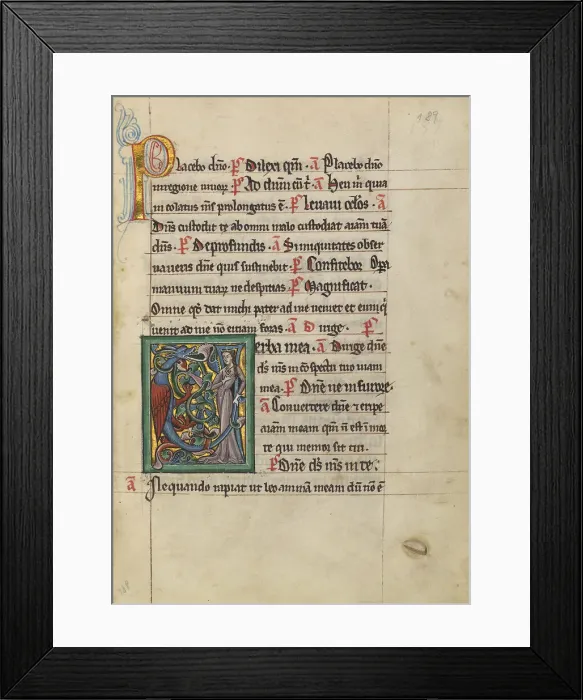 189
Placebo dno. ps Dilexi qm. a Placebo dno
in regione uiuor ps Ad dnm cu t. a Heu m quia
in colatus ms prolongatus e. ps leuaui oclos. a
Dns custodit te ab omni malo custodiat aiam tua
dns. ps De profundis. a Si iniquitates obser
uaueris dne quis sustinebit. ps Confitebor Opa
manuum tuar ne despicias ps Magnificat.
Omne qd dat michi pater ad me ueniet et eum q
uenit ad me no eiciam foras. a Dirige. ps
Verba mea. a Dirige dne
ds ms in cospectu tuo uiam
mea. ps Dne ne in furore.
a Conuertere dne et eripe
aiam meam qm n est in mor
te qui memor sit tui.
ps Dne ds ms in te.
a Nequando rapiat ut leo anima meam du no e